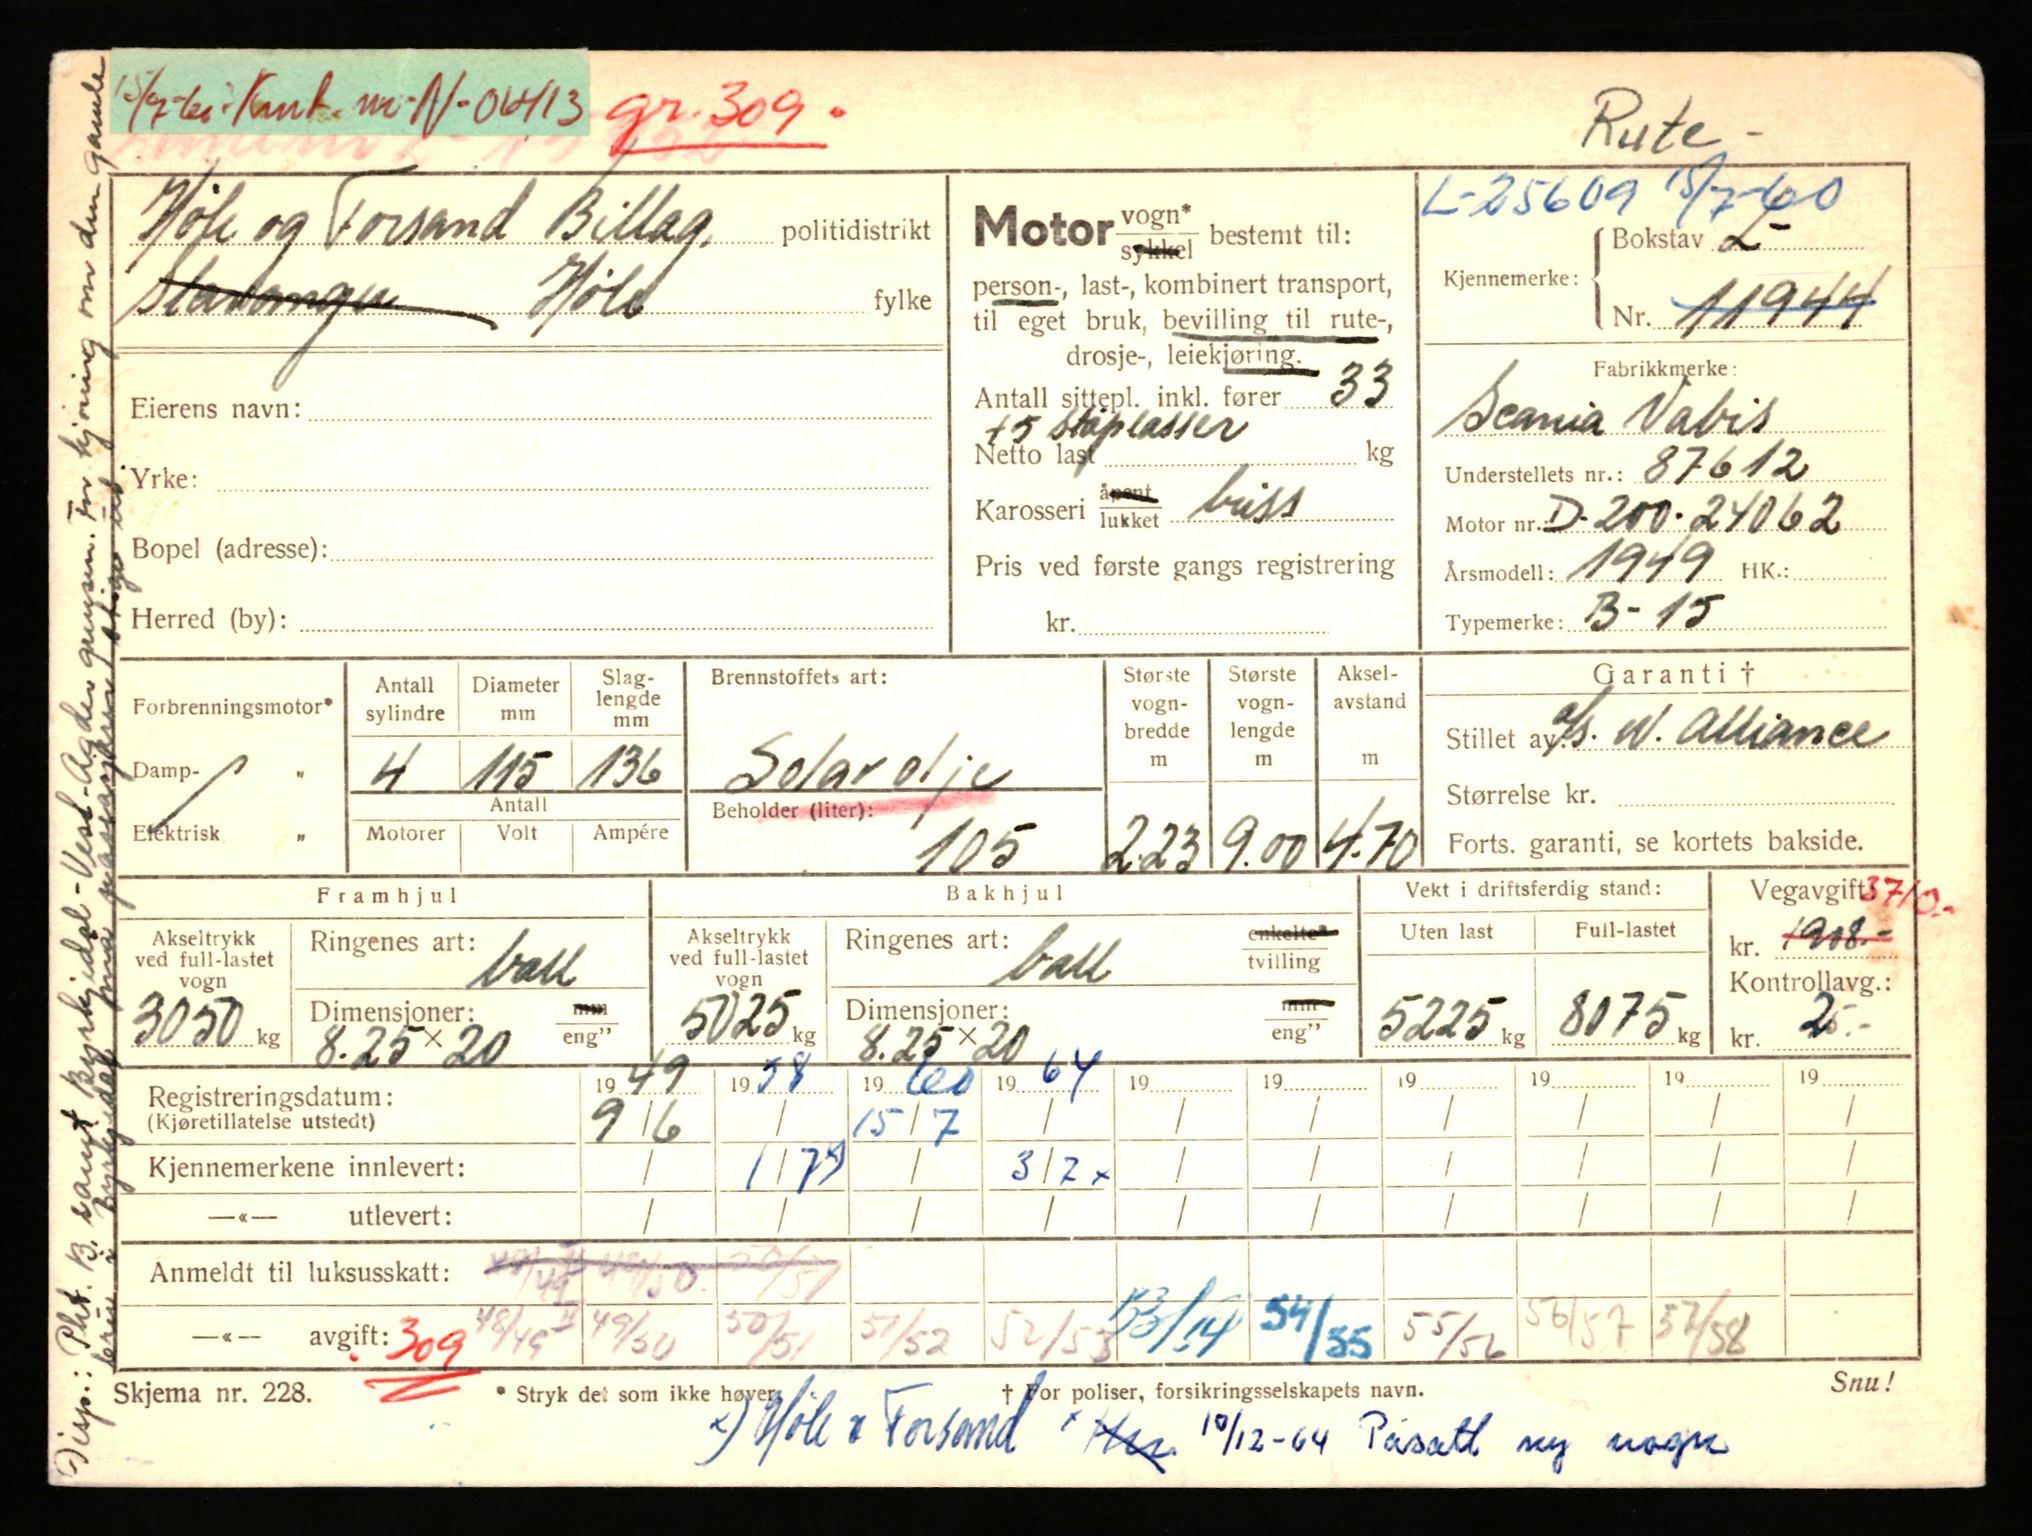 15/7-60. Kmt. nr. N-06413 gr. 309.
Rute -
Høle og Forsand Billag. politidistrikt
Stavanger Høle fylke
Eierens navn:
Yrke:
Bopel (adresse):
Herred (by):
Motor vogn* sykkel bestemt til:
person-, last-, kombinert transport,
til eget bruk, bevilling til rute-,
drosje-, leiekjøring.
Antall sittepl. inkl. fører 33
+5 ståplasser
Netto last kg
Karosseri åpent lukket buss
Pris ved første gangs registrering
kr.
L-25609 15/7-60
Kjennemerke: Bokstav L-
Nr. 11944
Fabrikkmerke:
Scania Vabis
Understellets nr.: 87612
Motor nr.: D-200-24062
Årsmodell: 1949 HK.:
Typemerke: B-15
Forbrenningsmotor*
Damp- „
Elektrisk „
Antall sylindre
Diameter mm
Slag-lengde mm
4 115 136
Antall
Motorer Volt Ampére
Brennstoffets art:
Solarolje
Beholder (liter):
105
Største vogn-bredde m
2.23
Største vogn-lengde m
9.00
Aksel-avstand m
4.70
Garanti †
Stillet av: a/s. N. Alliance
Størrelse kr.
Forts. garanti, se kortets bakside.
Framhjul
Akseltrykk ved full-lastet vogn
3050 kg
Ringenes art: ball
Dimensjoner: mm eng”
8.25 × 20
Bakhjul
Akseltrykk ved full-lastet vogn
5025 kg
Ringenes art: ball enkelte* tvilling
Dimensjoner: mm eng”
8.25 × 20
Vekt i driftsferdig stand:
Uten last Full-lastet
5225 kg 8075 kg
Vegavgift: 3710.-
kr. 1908.-
Kontrollavg.:
kr. 25.-
Registreringsdatum: 19 49 19 58 19 60 19 64 19 19 19 19 19 19
(Kjøretillatelse utstedt) 9/6 / 15/7 / / / / / / /
Kjennemerkene innlevert: / 1/7 x) / 3/2 x / / / / / /
—«— utlevert: / / / / / / / / / /
Anmeldt til luksusskatt: 48/49 II 49/50. 50/51
—«— avgift: 309 48/49 II 49/50 50/51 51/52 52/53 53/54 54/55 55/56 56/57 57/58
Skjema nr. 228. * Stryk det som ikke høver. † For poliser, forsikringsselskapets navn. Snu!
x) Høle & Forsand x 10/12-64 Påsatt ny vogn